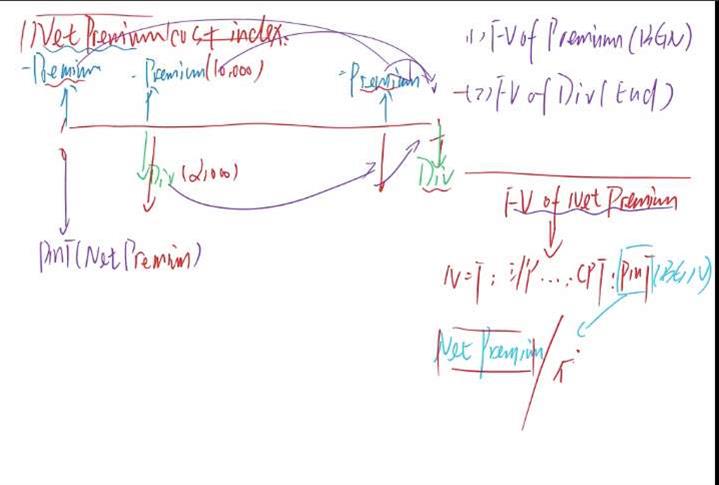 1) Net Premium cost index:
-Premium
- Premium (10,000)
- Premium
Div (2,000)
Div
PmT (Net Premium)
(1) FV of Premium (BGN)
-(2) FV of Div (End)
FV of Net Premium
N=T; I/Y ....; CPT: PmT (BGN)
Net Premium /